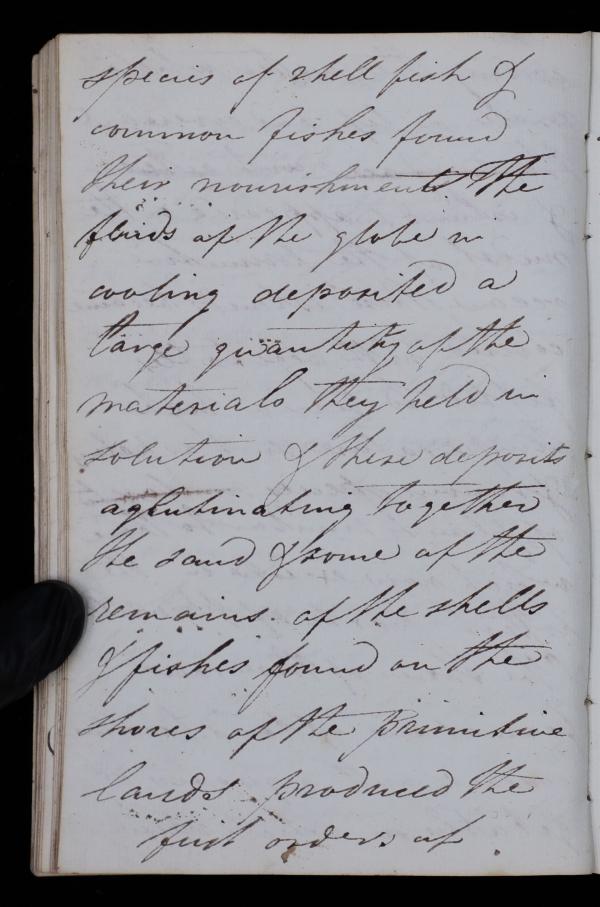 species of shell fish &
common fishes found
their nourishment The
fluids of the globe in
cooling deposited a
large quantity of the
materials they held in
solution & these deposits
aglutinating together
the sand & some of the
remains of the shells
& fishes found on the
shores of the primitive
lands produced the
first orders of